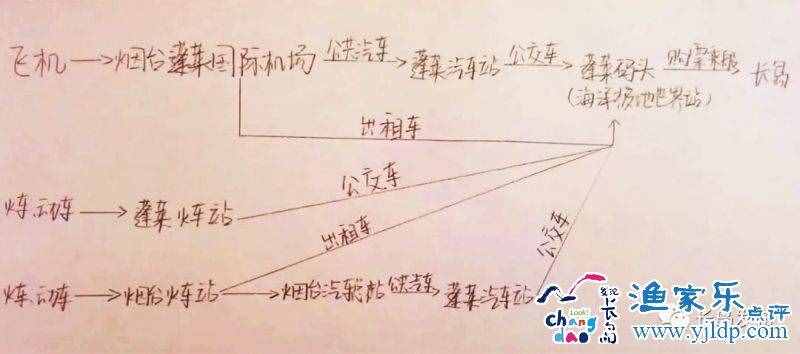 飞机→烟台蓬莱国际机场 公共汽车→ 蓬莱汽车站 公交车→ 蓬莱码头 购票乘船 长岛
(海洋极地世界站)
出租车
公交车
火车、动车→蓬莱火车站
出租车
公交车
火车、动车→烟台火车站→烟台汽车总站 公共汽车 蓬莱汽车站
发现长岛
Look!
chang dao
渔家乐点评
www.yjldp.com